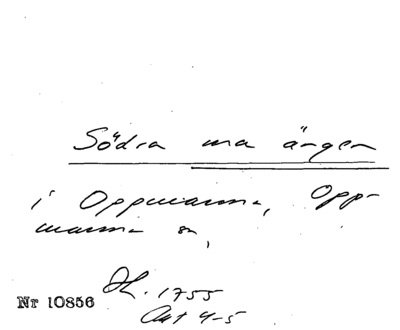 Södra ma ängen
i Oppmanna, Opp-
manna sn,
Nr 10856
1755
Akt 4-5